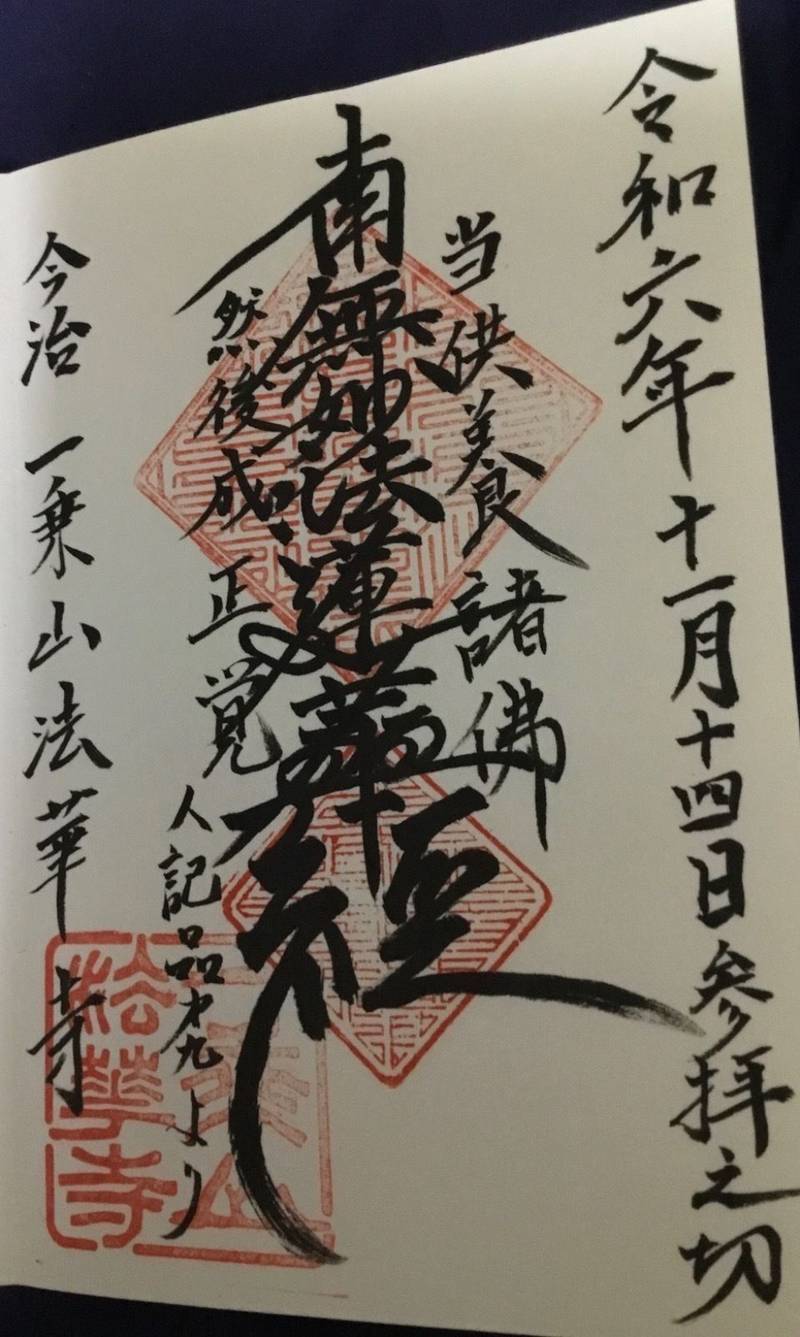 令和六年十一月十四日参拝之切
当供養諸佛
南無妙法蓮華経
然後成正覚
人記品第九より
今治 一乗山法華寺
一乗山
法華寺